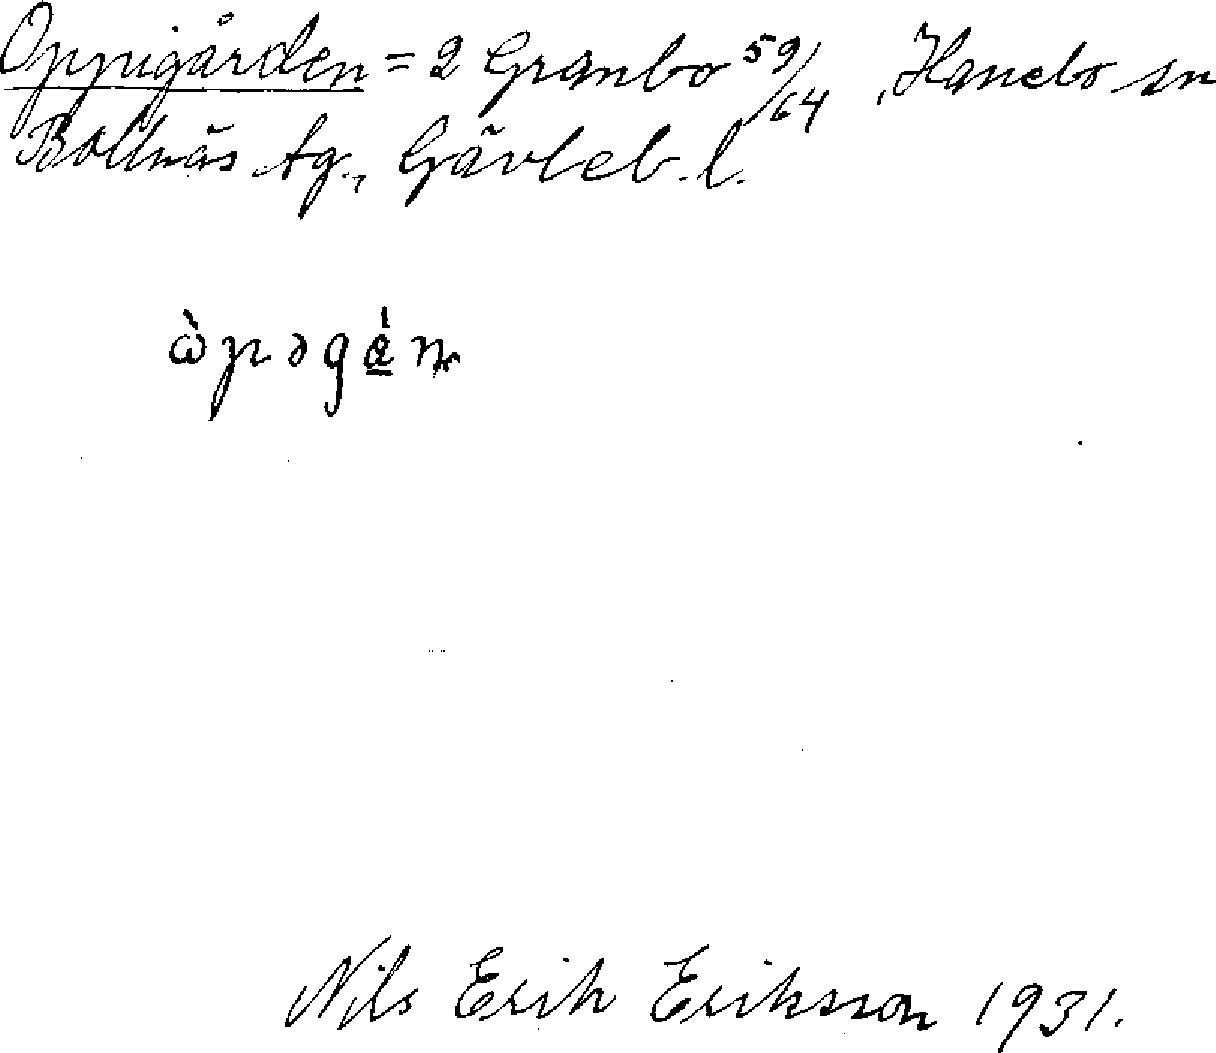 Oppigården = 2 Granbo 59/64, Hanebo sn
Bollnäs tg., Gävleb. l.
ὼpəgɑ́n
Nils Erik Eriksson 1931.